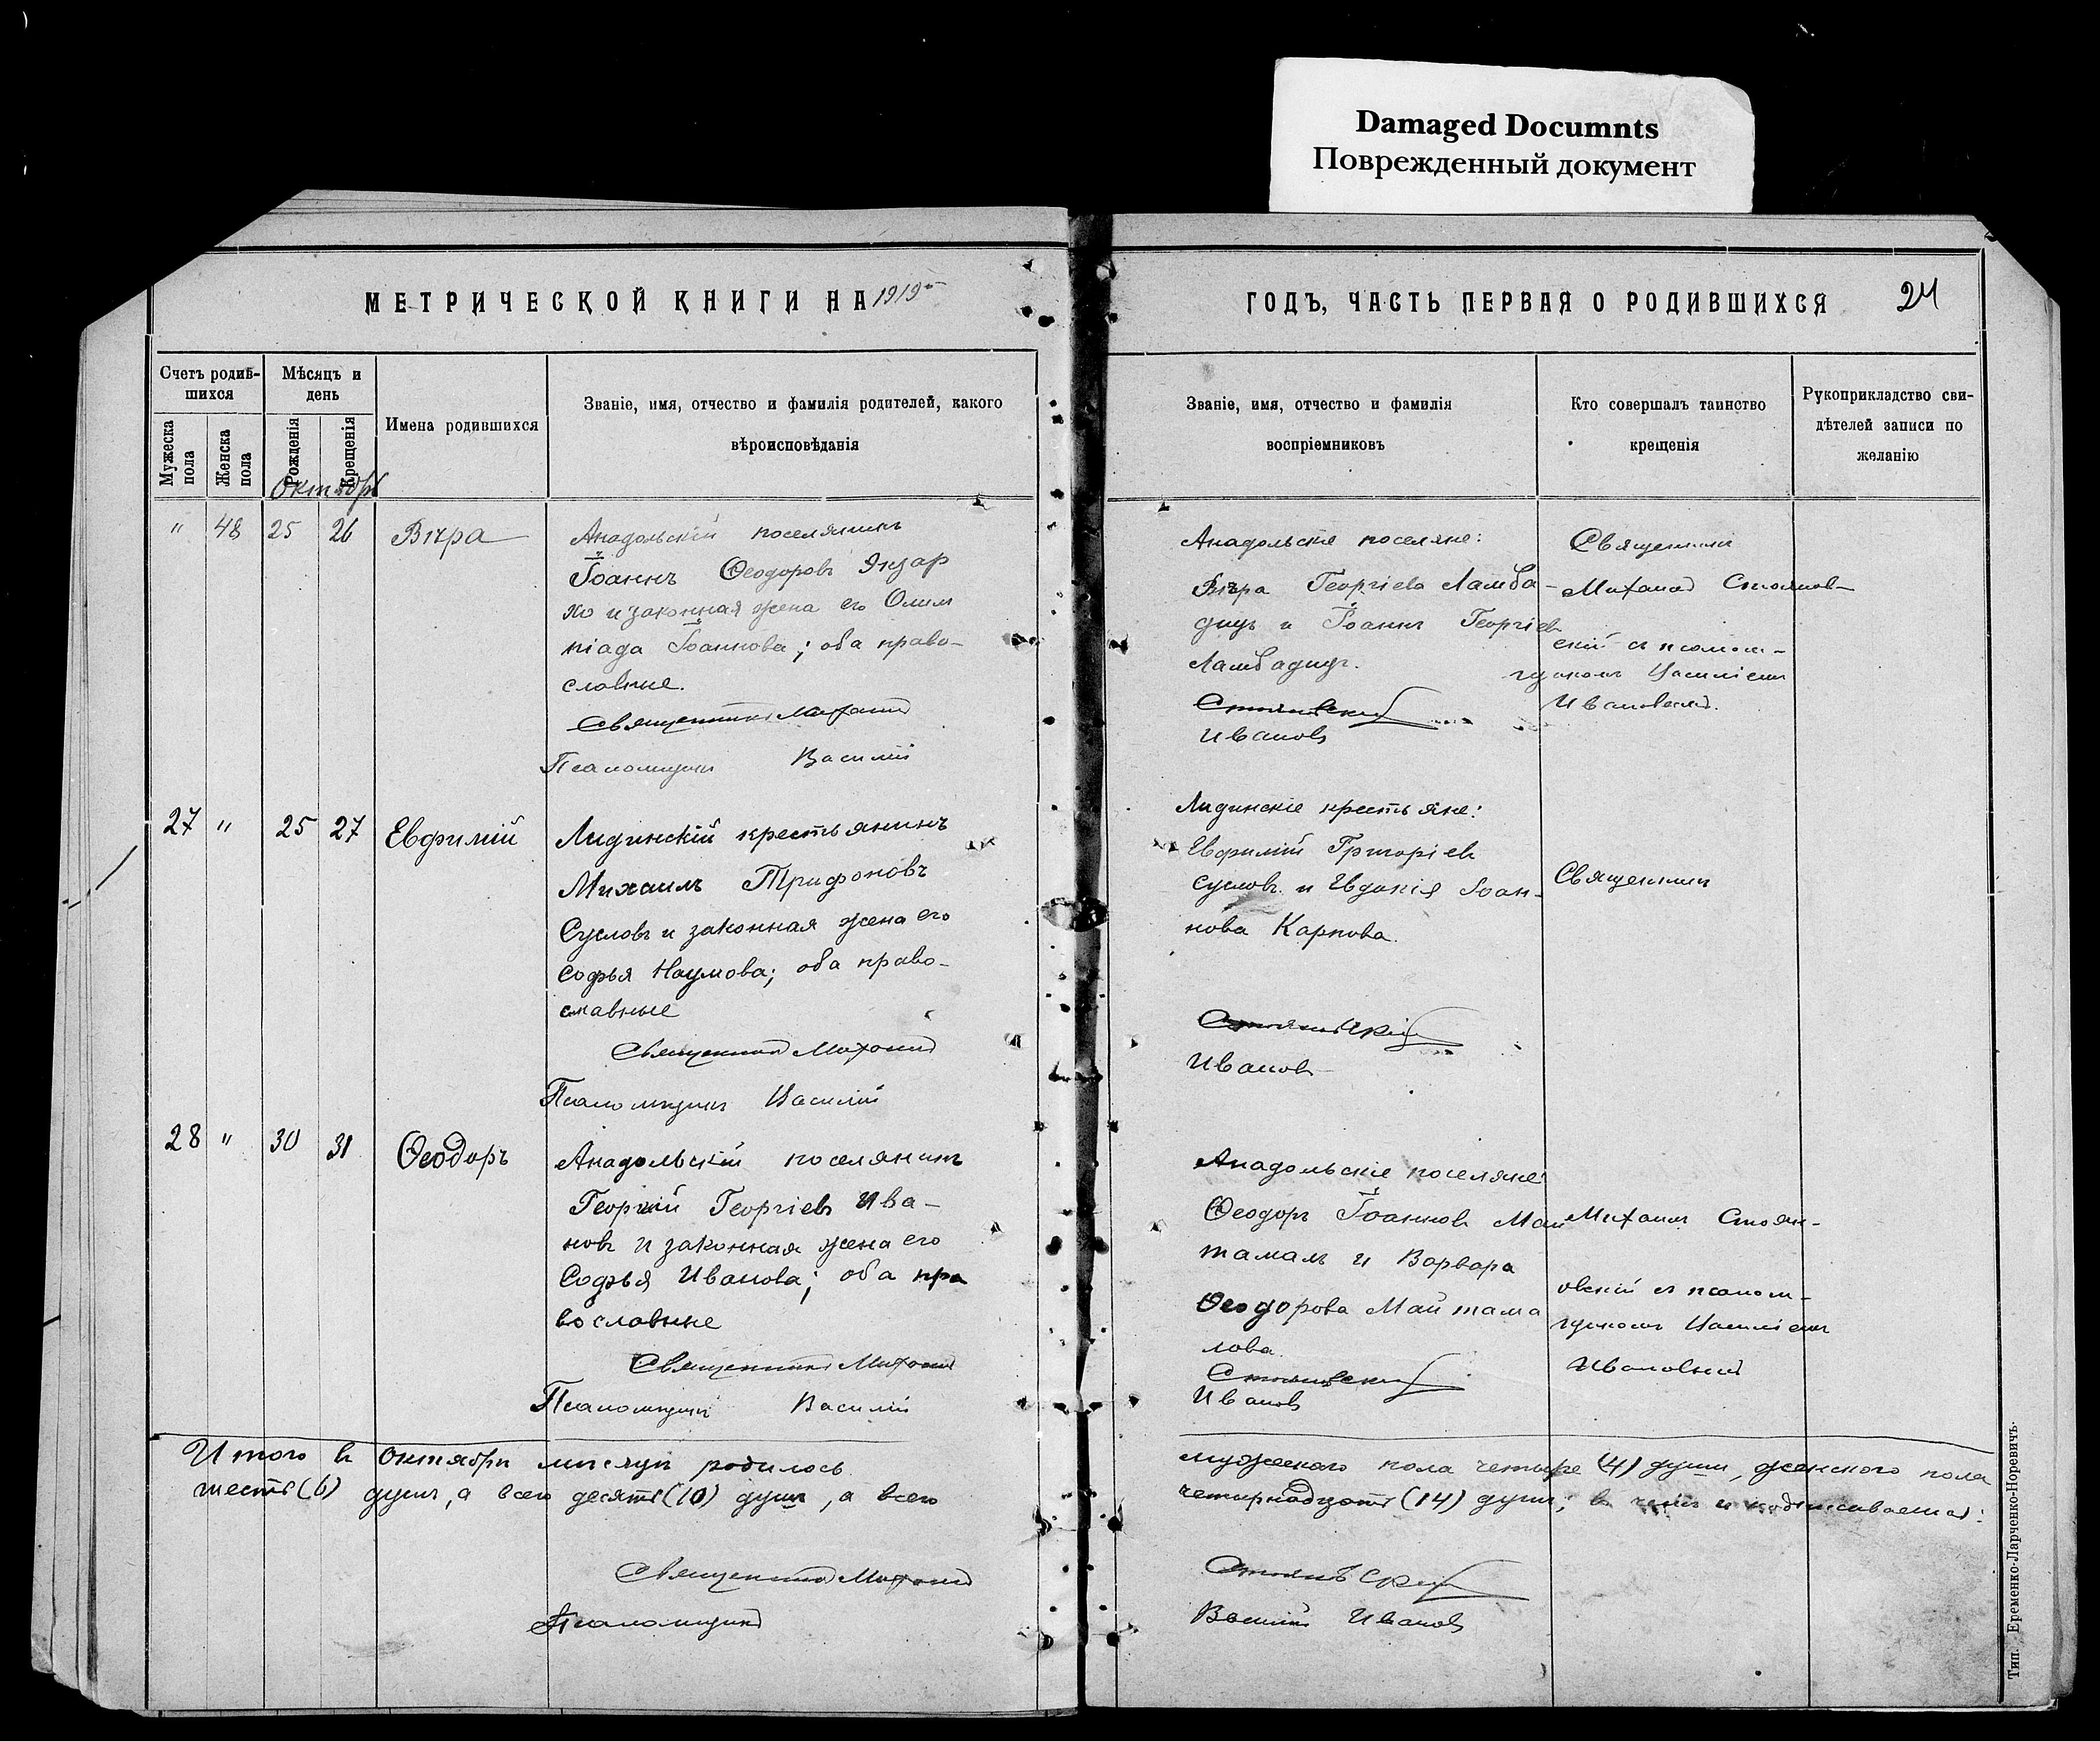 Damaged Documnts
Поврежденный документ
МЕТРИЧЕСКОЙ КНИГИ НА 1919
ГОДЪ, ЧАСТЬ ПЕРВАЯ О РОДИВШИХСЯ
24
Счетъ родив-
шихся
Мѣсяцъ и
день
Мужеска
пола
Женска
пола
Рожденія
Крещенія
Имена родившихся
Званіе, имя, отчество и фамилія родителей, какого
вѣроисповѣданія
Званіе, имя, отчество и фамилія
воспріемниковъ
Кто совершалъ таинство
крещенія
Рукоприкладство сви-
дѣтелей записи по
желанію
Октябрь
" 48 25 26 Вѣра
Анадольскій поселянинъ
Іоаннъ Ѳеодоровъ Янзар
хо и законная жена его Олим
піада Іоаннова; оба право-
славные.
Священникъ Михаилъ
Псаломщикъ Василій
Анадольскіе поселяне:
Вѣра Георгіева Ламба-
дицъ и Іоаннъ Георгіевъ
Ламбадицъ.
Стояновскій
Ивановъ
Священникъ
Михаилъ Стоянов-
скій съ псалом-
щикомъ Василіемъ
Ивановымъ.
27 " 25 27 Евфимій
Лидинскій крестьянинъ
Михаилъ Трифоновъ
Сусловъ и законная жена его
Софья Наумова; оба право-
славные
Священникъ Михаилъ
Псаломщикъ Василій
Лидинскіе крестьяне:
Евфимій Григоріевъ
Сусловъ и Евдокія Іоан-
нова Карпова.
Стояновскій
Ивановъ
Священникъ
28 " 30 31 Ѳеодоръ
Анадольскій поселянинъ
Георгій Георгіевъ Ива-
новъ и законная жена его
Софья Иванова; оба пра
вославные
Священникъ Михаилъ
Псаломщикъ Василій
Анадольскіе поселяне:
Ѳеодоръ Іоанновъ Май
тамалъ и Варвара
Ѳеодорова Майтама
лова.
Стояновскій
Ивановъ
Михаилъ Стоян-
овскій съ псалом-
щикомъ Василіемъ
Ивановымъ
Итого въ октябрѣ мѣсяцѣ родилось
мужескаго пола четыре (4) души, женскаго пола
шесть (6) душъ, а всего десять (10) душъ, а всего
четырнадцать (14) душъ; въ чемъ и подписываемся:
Священникъ Михаилъ
Стояновскій
Псаломщикъ
Василій Ивановъ
Тип. Еременко-Ларченко-Норевичъ.